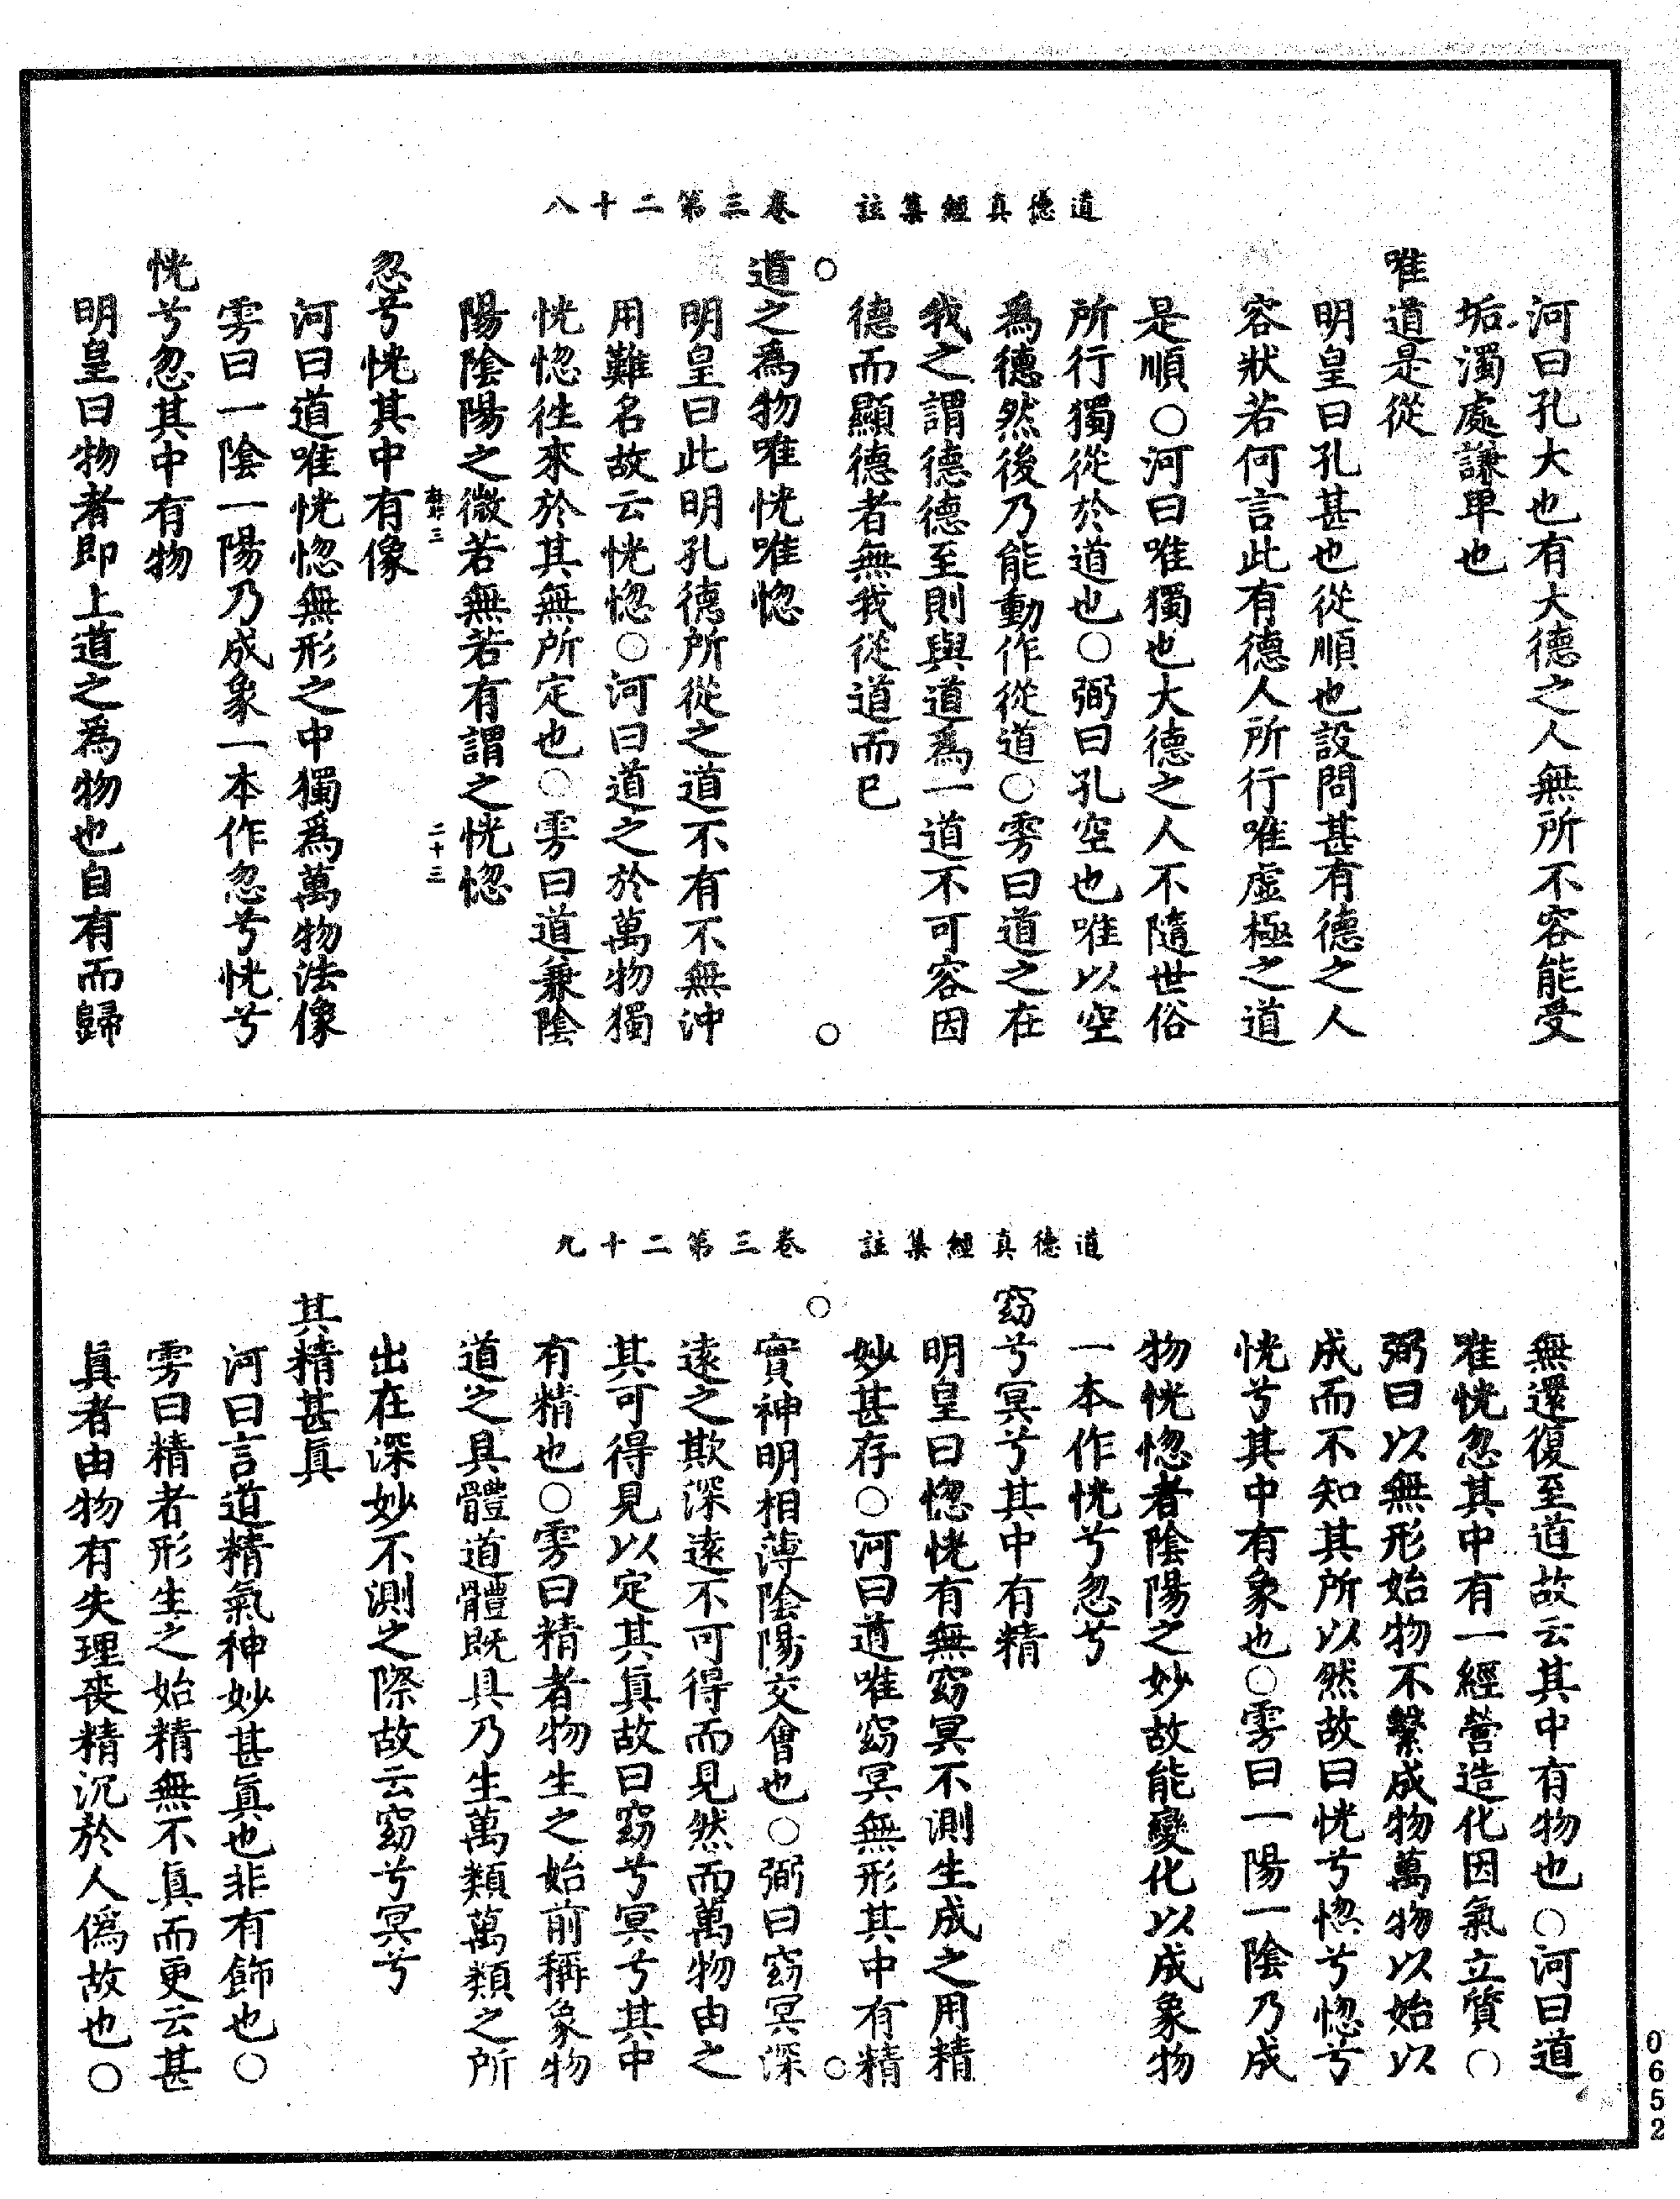 道德真經集註　卷三第二十八
河曰孔大也有大德之人無所不容能受
垢濁處謙卑也
唯道是從
明皇曰孔甚也從順也設問甚有德之人
容狀若何言此有德人所行唯虛極之道
是順○河曰唯獨也大德之人不隨世俗
所行獨從於道也○弼曰孔空也唯以空
爲德然後乃能動作從道○雱曰道之在
我之謂德德至則與道爲一道不可容因
德而顯德者無我從道而已
道之爲物唯恍唯惚
明皇曰此明孔德所從之道不有不無沖
用難名故云恍惚○河曰道之於萬物獨
恍惚往來於其無所定也○雱曰道兼陰
陽陰陽之微若無若有謂之恍惚
二十三
忽兮恍其中有像
河曰道唯恍惚無形之中獨爲萬物法像
雱曰一陰一陽乃成象一本作忽兮恍兮
恍兮忽其中有物
明皇曰物者即上道之爲物也自有而歸
道德真經集註　卷三第二十九
無還復至道故云其中有物也○河曰道
唯恍忽其中有一經營造化因氣立質○
弼曰以無形始物不繫成物萬物以始以
成而不知其所以然故曰恍兮惚兮惚兮
恍兮其中有象也○雱曰一陽一陰乃成
物恍惚者陰陽之妙故能變化以成象物
一本作恍兮忽兮
窈兮冥兮其中有精
明皇曰惚恍有無窈冥不測生成之用精
妙甚存○河曰道唯窈冥無形其中有精
實神明相薄陰陽交會也○弼曰窈冥深
遠之歎深遠不可得而見然而萬物由之
其可得見以定其眞故曰窈兮冥兮其中
有精也○雱曰精者物生之始前稱象物
道之具體道體既具乃生萬類萬類之所
出在深妙不測之際故云窈兮冥兮
其精甚眞
河曰言道精氣神妙甚眞也非有飾也○
雱曰精者形生之始精無不眞而更云甚
眞者由物有失理喪精沉於人僞故也○
0652